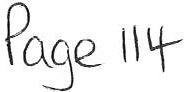 Page 114